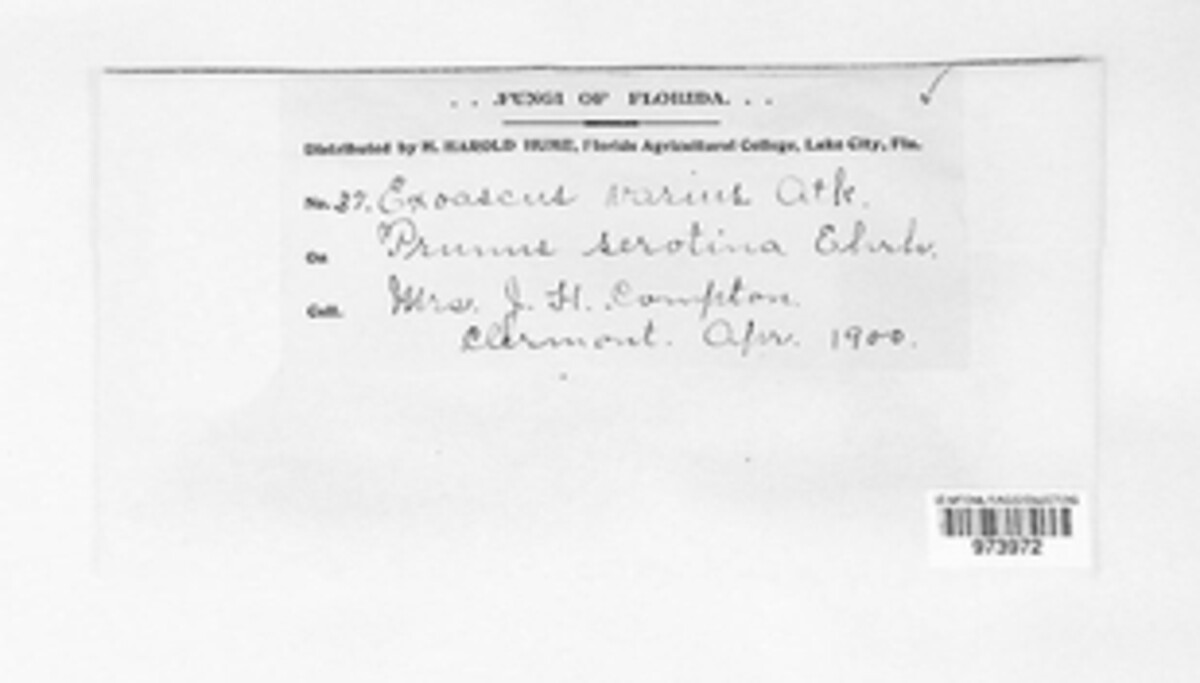 . . .FUNGI OF FLORIDA. . .
Distributed by H. HAROLD HUME, Florida Agricultural College, Lake City, Fla.
No. 37. Exoascus varius Atk.
On Prunus serotina Ehrh.
Coll. Mrs. J. H. Compton.
Clermont. Apr. 1900.
973972